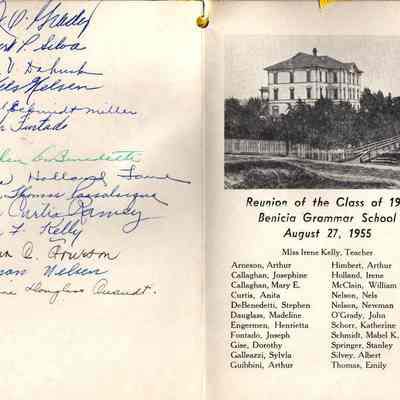 O'Grady
P. Silva
V.
Nelsen
Schmidt Miller
Furtado
DeBenedetti
Holland
Thomas
Curtis Ramsey
F. Kelly
Nelsen
Douglass
Reunion of the Class of 19
Benicia Grammar School
August 27, 1955
Miss Irene Kelly, Teacher
Arneson, Arthur
Callaghan, Josephine
Callaghan, Mary E.
Curtis, Anita
DeBenedetti, Stephen
Dauglass, Madeline
Engermen, Henrietta
Fontado, Joseph
Gise, Dorothy
Galleazzi, Sylvia
Guibbini, Arthur
Himbert, Arthur
Holland, Irene
McClain, William
Nelson, Nels
Nelson, Newman
O'Grady, John
Schorr, Katherine
Schmidt, Mabel K.
Springer, Stanley
Silvey, Albert
Thomas, Emily